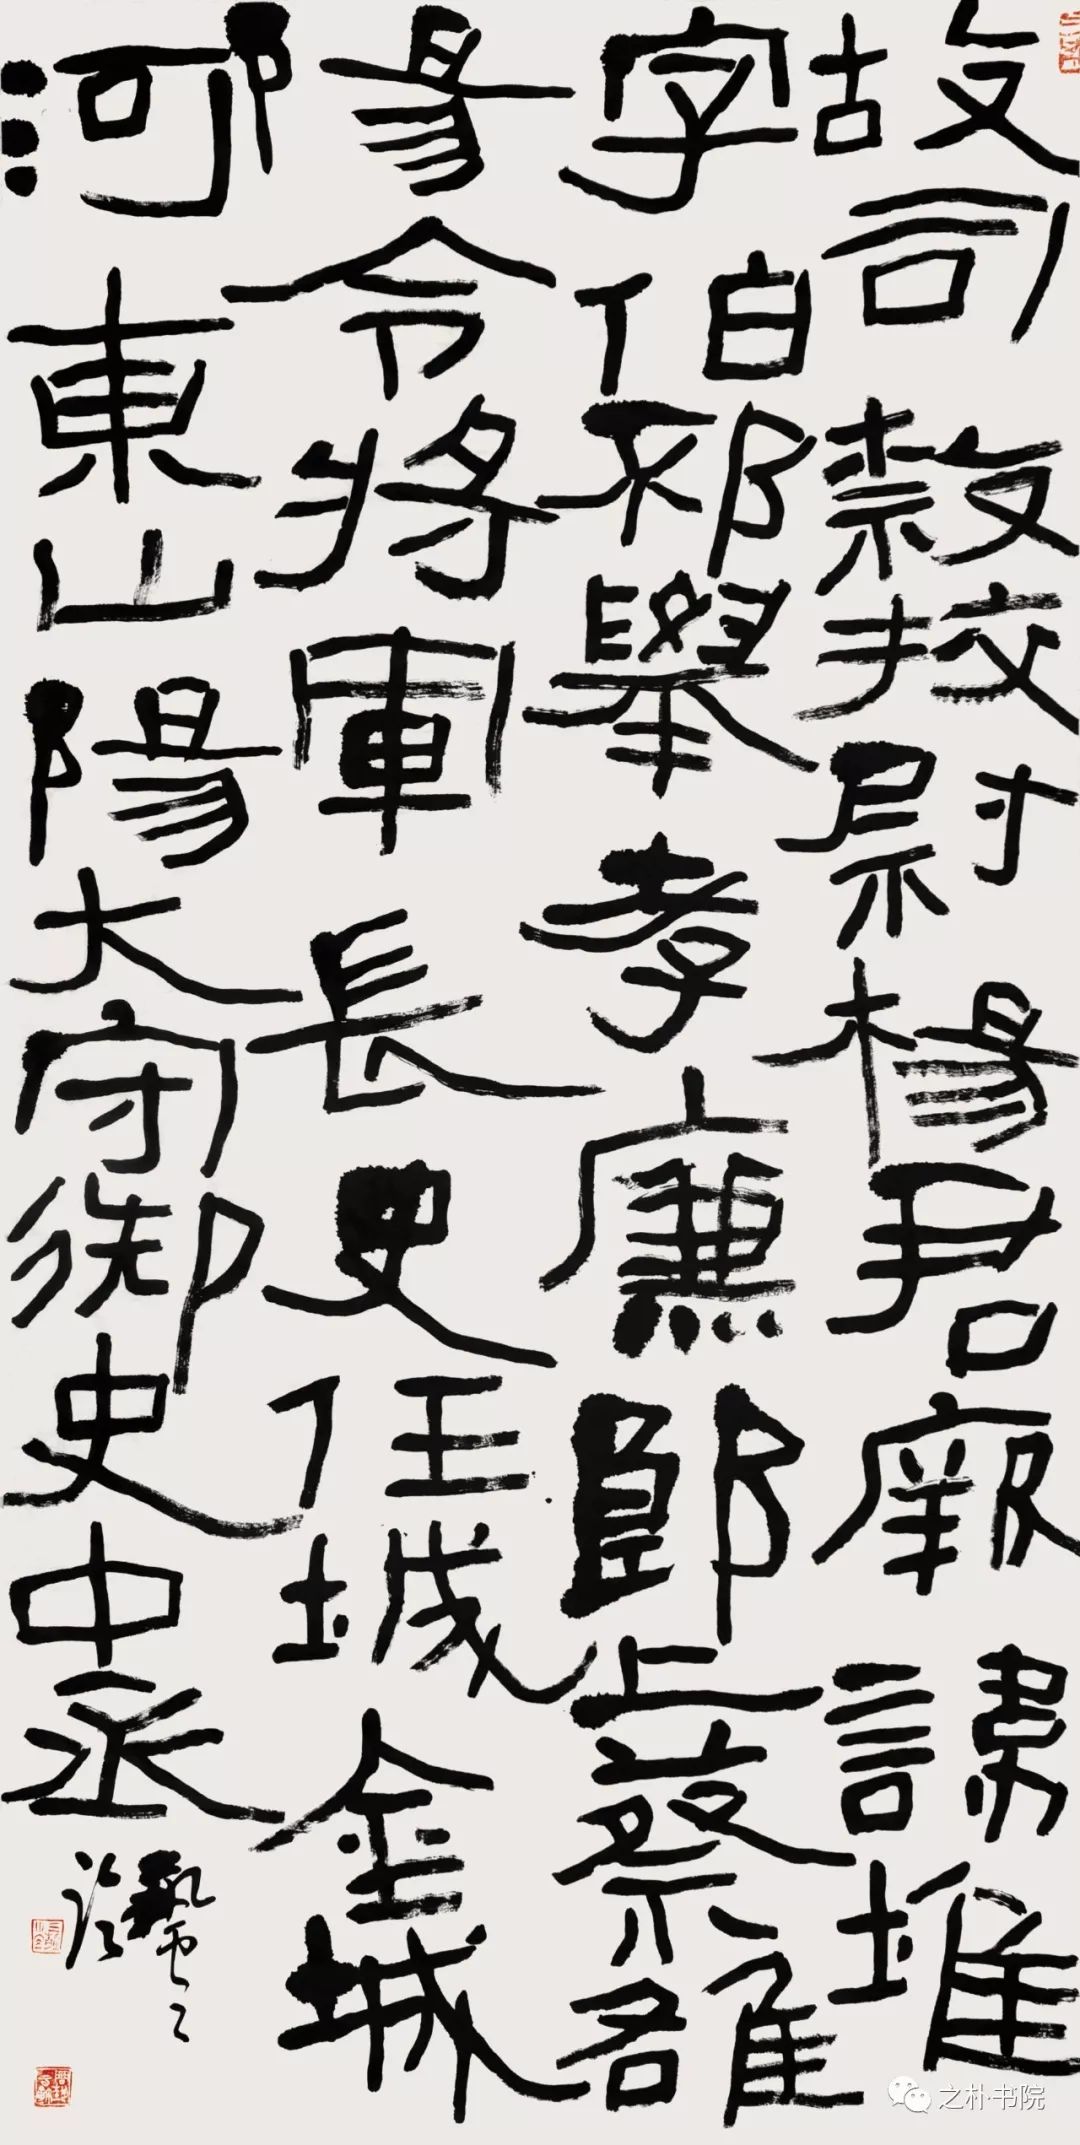 故司隸校尉楊君厥諱堆
字伯邳舉孝廉郎上蔡雒
陽令將軍長史任城金城
河東山陽大守御史中丞
之朴·书院